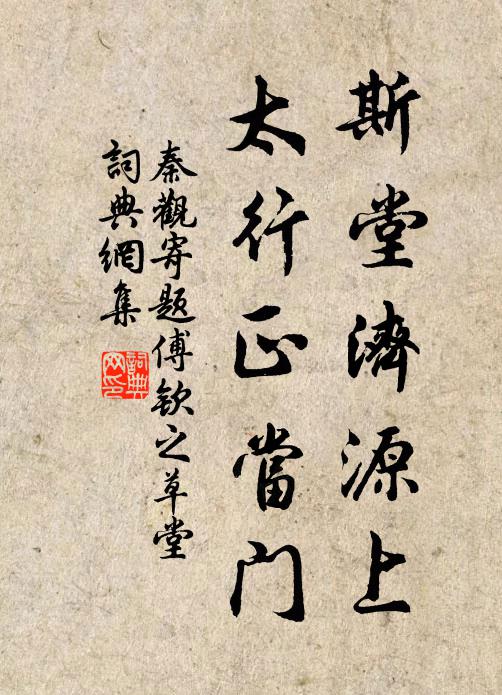 斯堂濟源上
太行正當門
秦觀寄題傅欽之草堂
詞典網集
詞典網印